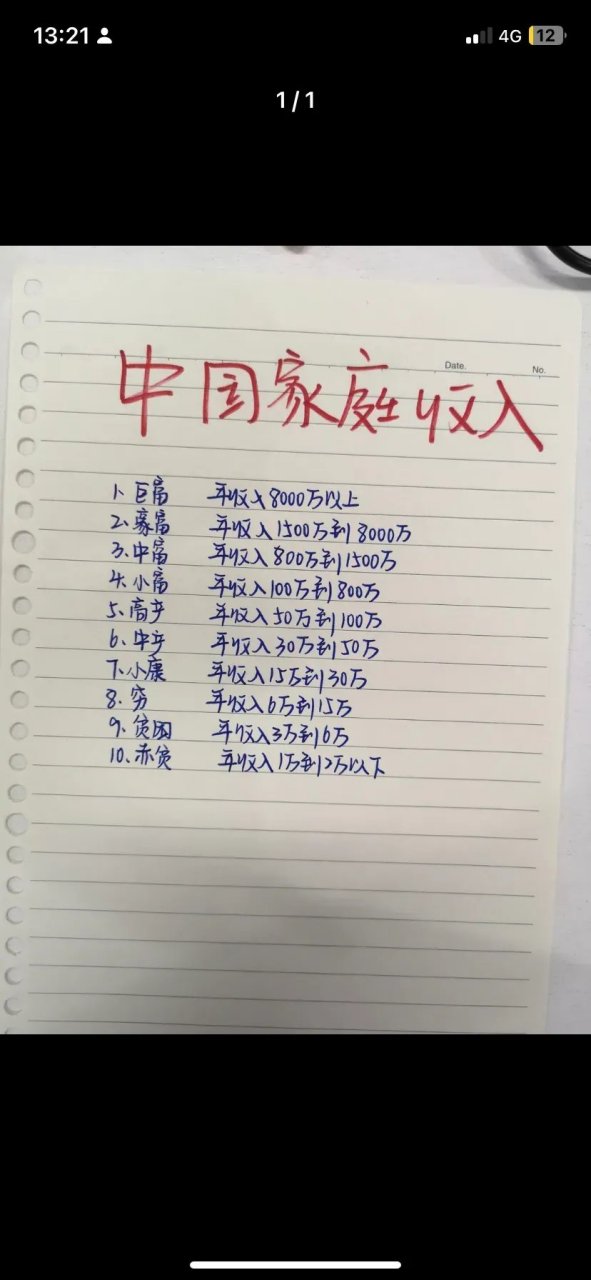 13:21
4G 12
1/1
Date.
No.
中国家庭收入
1、巨富 年收入8000万以上
2、豪富 年收入1500万到8000万
3、中富 年收入800万到1500万
4、小富 年收入100万到800万
5、高产 年收入50万到100万
6、中产 年收入30万到50万
7、小康 年收入15万到30万
8、穷 年收入6万到15万
9、贫困 年收入3万到6万
10、赤贫 年收入1万到2万以下